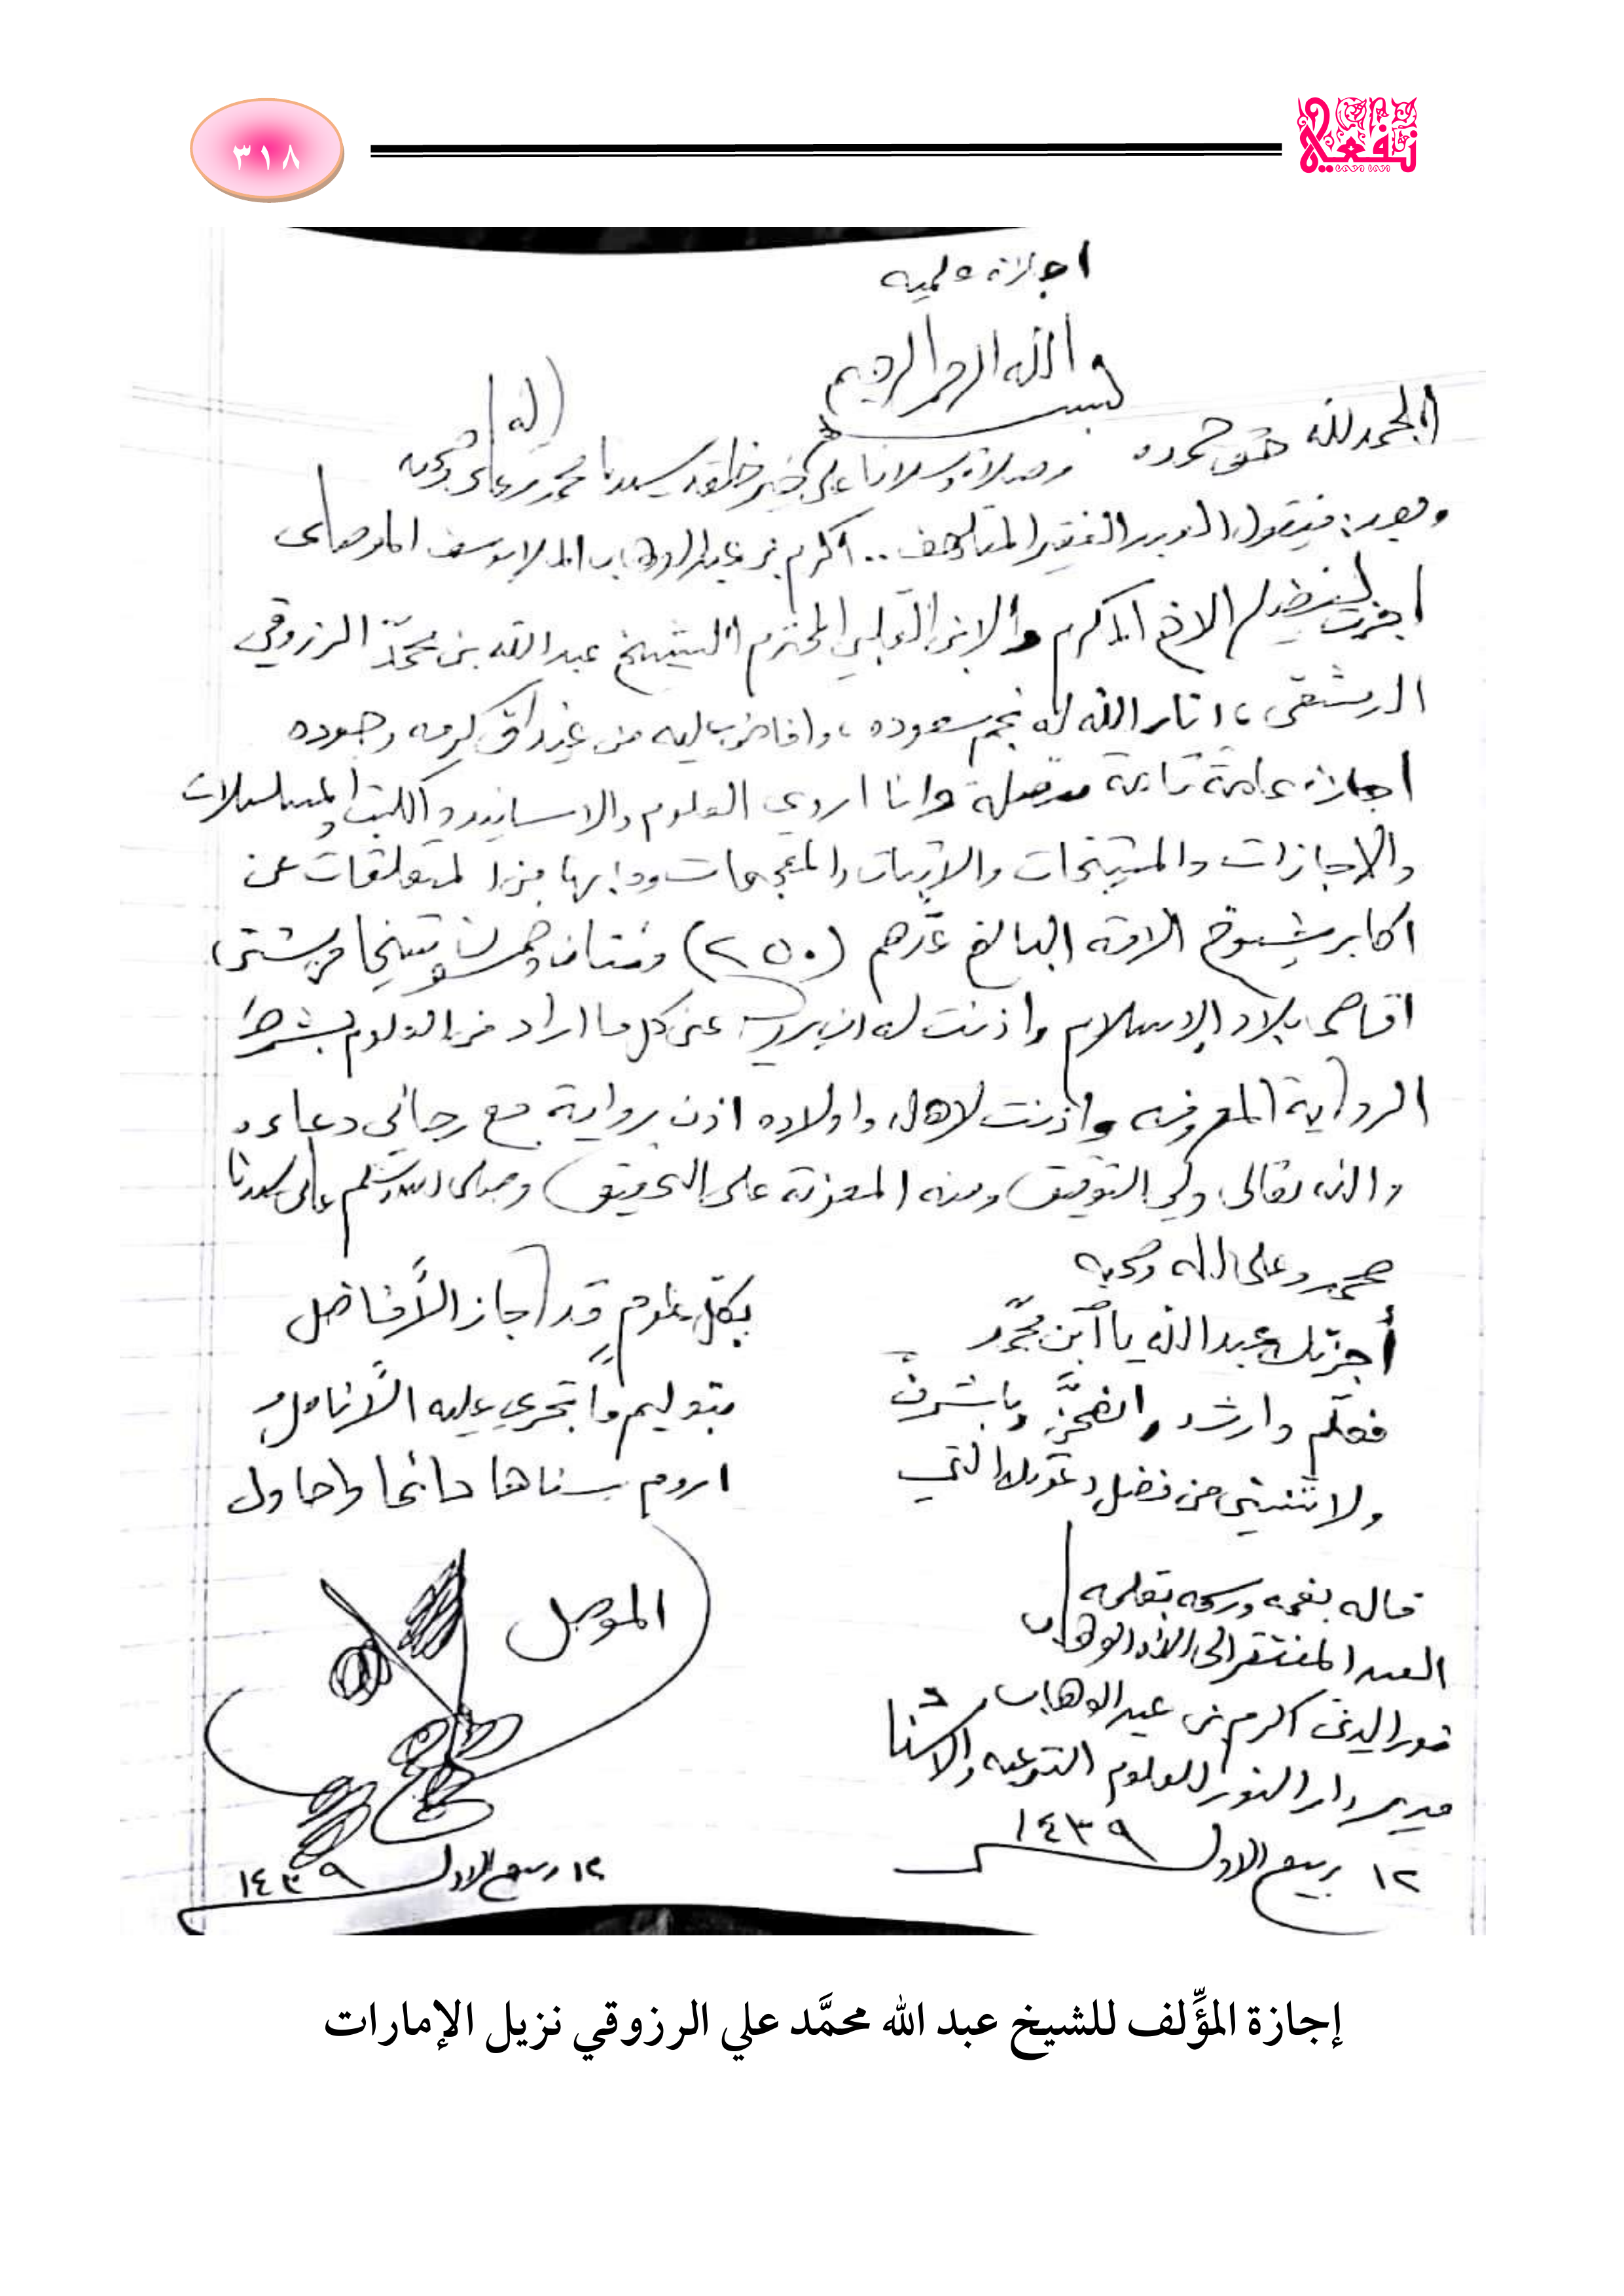 ٣١٨
اجازة علمية
بسم الله الرحمن الرحيم
الحمد لله حق حمده وصلاة وسلاما على خير خلقه سيدنا محمد وعلى آله وصحبه
وبعد: فيقول العبد الفقير .. اكرم بن عبد الوهاب الملا يوسف الموصلي
اجزت لفضيلة الاخ المكرم والابن القلبي المحترم الشيخ عبد الله بن محمّد الرزوقي
الدمشقي، انار الله له نجم سعوده، وافاض عليه من غيداق كرمه وجوده
اجازة عامة تامة متصلة وانا اروي العلوم والاسانيد والكتب والمسلسلات
والاجازات والمشيخات والاثبات والمعجمات من المتعلقات عن
اكابر شيوخ الامة البالغ عدّهم (٢٥٠) مئتان وخمسون شيخا من شتى
اقاصي بلاد الاسلام واذنت له ان يروي عني كل ما اراد من العلوم بشرط
الرواية المعروفة واذنت لاهله واولاده اذن رواية مع رجائي دعاءه
والله تعالى ولي التوفيق ومنه المعونة على التحقيق وصلى الله وسلم على سيدنا
محمد وعلى اله وصحبه
أجزتك عبد الله يا ابن محمّد بكلّ علوم قد اجاز الأفاضل
فعلّم وارشد وانصحنّ وباشرن بتعليم ما تجري عليه الأنامل
ولا تنسني من فضل دعوتك التي اروم سناها دائما واحاول
قاله بفمه ورسمه بقلمه
العبد المفتقر الى الله الوهاب
نور الدين اكرم بن عبد الوهاب
مدير دار النور للعلوم الشرعية والافتاء
١٢ ربيع الاول ١٤٣٩
الموصل
١٢ ربيع الاول ١٤٣٩
إجازة المؤِّلف للشيخ عبد الله محمَّد علي الرزوقي نزيل الإمارات